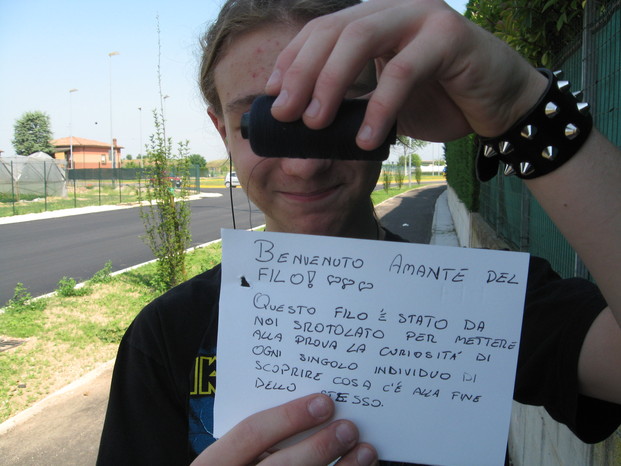 BENVENUTO AMANTE DEL
FILO!
QUESTO FILO È STATO DA
NOI SROTOLATO PER METTERE
ALLA PROVA LA CURIOSITA' DI
OGNI SINGOLO INDIVIDUO DI
SCOPRIRE COSA C'È ALLA FINE
DELLO STESSO.